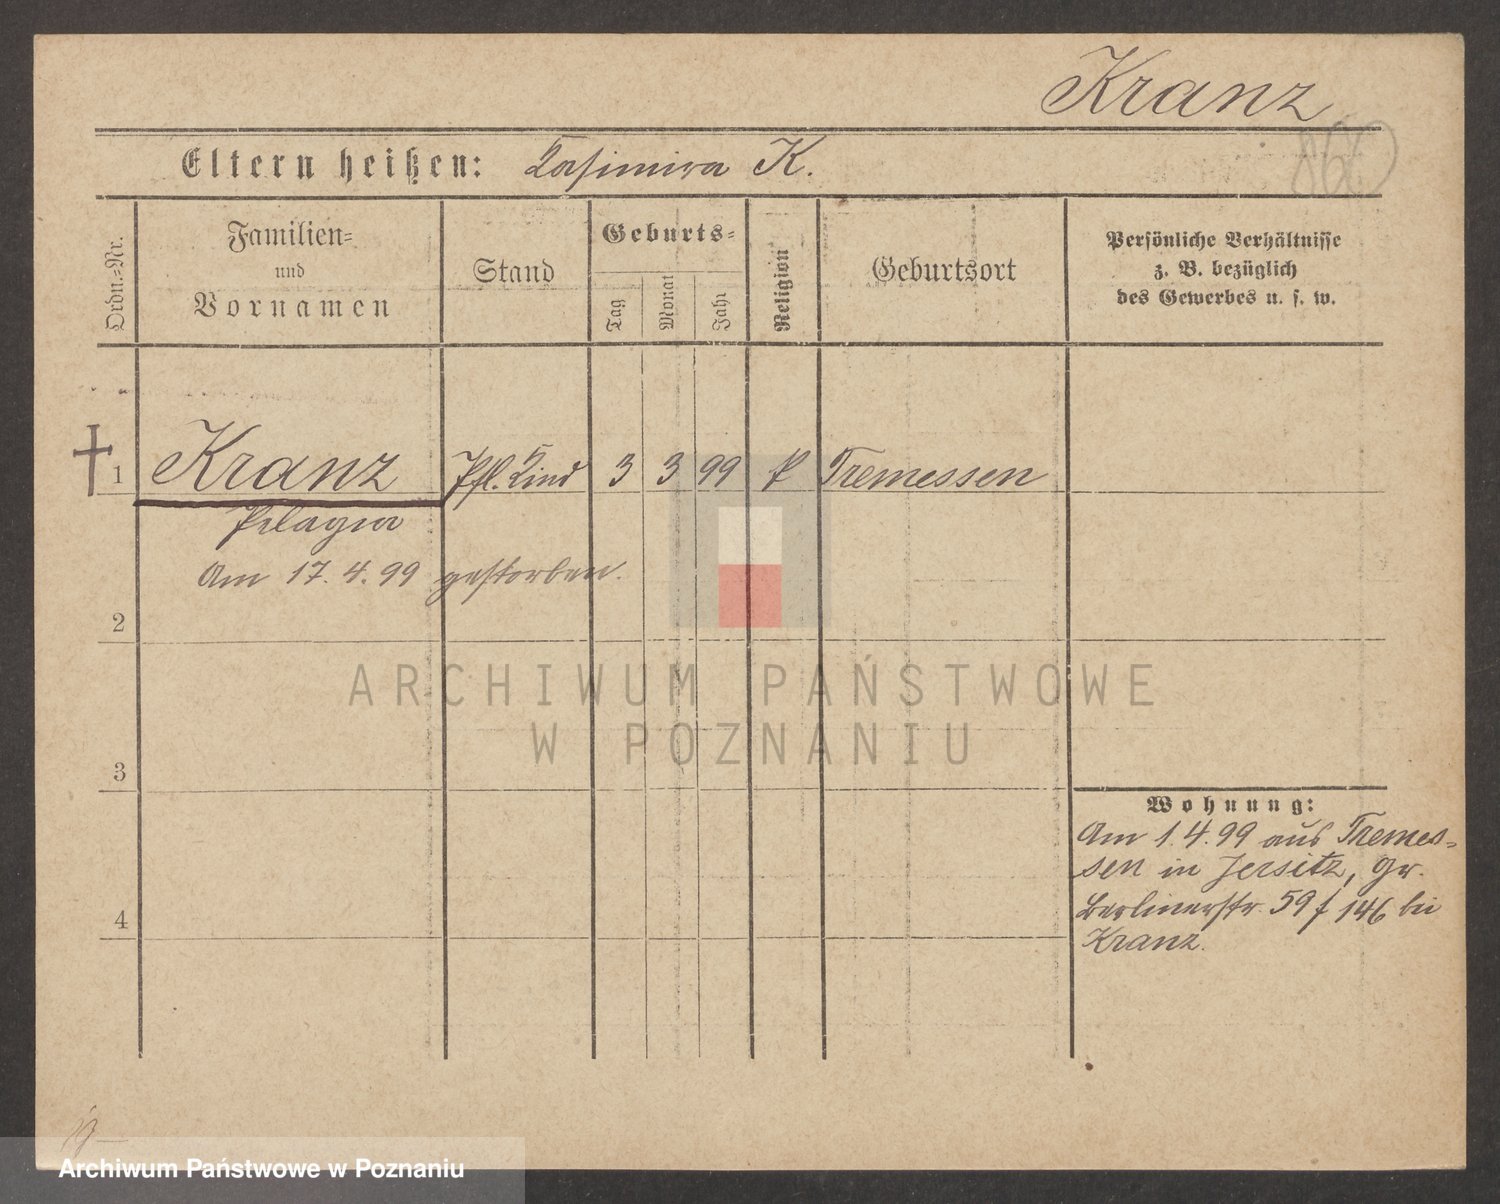 Kranz
860
Eltern heißen: Kasimira K.
Ordn.=Nr.
Familien=
und
Vornamen
Stand
Geburts=
Tag
Monat
Jahr
Religion
Geburtsort
Persönliche Verhältnisse
z. B. bezüglich
des Gewerbes u. s. w.
1 Kranz Pfl. Kind 3 3 99 k Tremessen
Pelagia
Am 17. 4. 99 gestorben.
2
ARCHIWUM PAŃSTWOWE
W POZNANIU
3
Wohnung:
Am 1. 4. 99 aus Tremes=
sen in Jersitz, Gr.
Berlinerstr. 59 f 146 bei
Kranz.
4
Archiwum Państwowe w Poznaniu